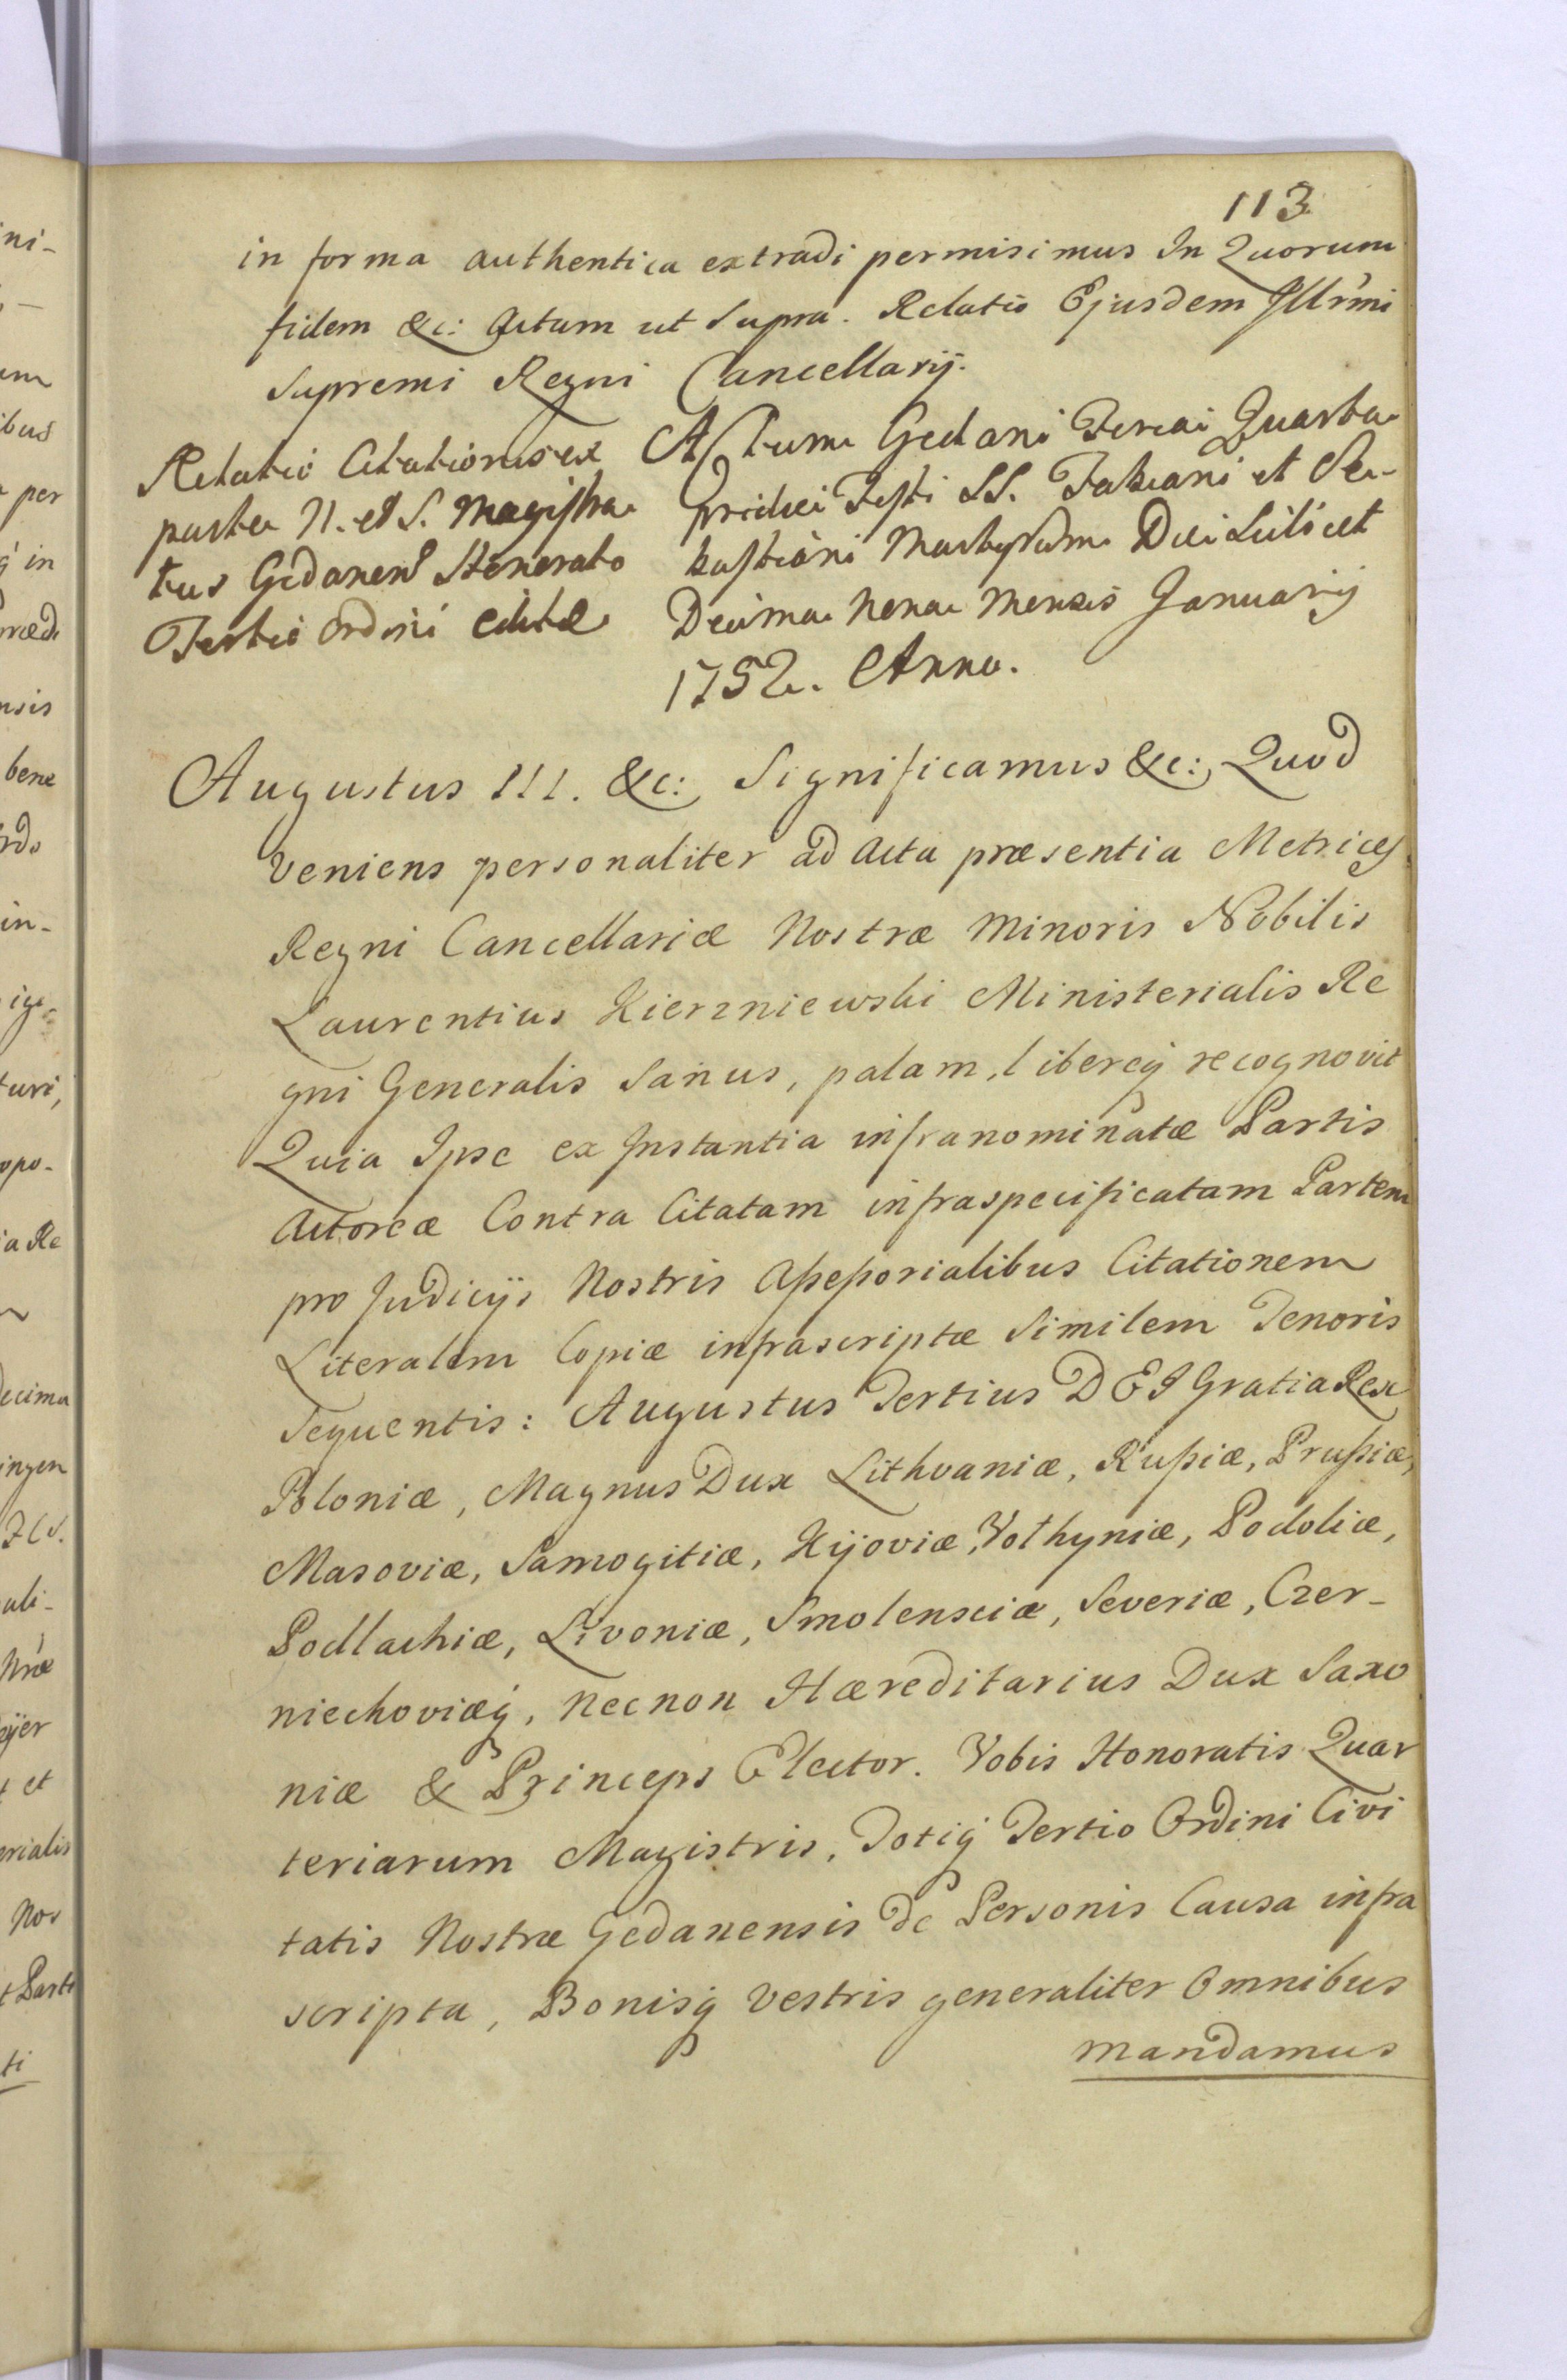 113
in forma authentica extradi permisimus In Quorum
fidem &c: Actum ut Supra. Relatio Ejusdem Illrmi
Supremi Regni Cancellarij.
Relatio Citationis ex
parte N. et S. Magistra
tus Gedanens Honorato
Tertio Ordini editæ
Actum Gedani Feria Quarta
pridie Festi SS. Fabiani et Se-
bastiani Martyrum Die Scilicet
Decima Nona Mensis Januarij
1752. Anno.
Augustus III. &c: Significamus &c: Quod
Veniens personaliter ad Acta præsentia Metrices
Regni Cancellariæ Nostræ Minoris Nobilis
Laurentius Kierzniewski Ministerialis Re
gni Generalis Sanus, palam, libereq recognovit
Quia Ipse ex Instantia infranominatæ Partis
Actoreæ Contra Citatam infraspecificatam Partem
pro Judicijs Nostris Aßeßorialibus Citationem
Literalem Copiæ infrascriptæ Similem Tenoris
Sequentis: Augustus Tertius DEI Gratia Rex
Poloniæ, Magnus Dux Lithvaniæ, Rußiæ, Prußiæ,
Masoviæ, Samogitiæ, Kijoviæ, Volhyniæ, Podoliæ,
Podlachiæ, Livoniæ, Smolensciæ, Severiæ, Czer-
niechoviæq, Necnon Hæreditarius Dux Saxo
niæ & Princeps Elector. Vobis Honoratis Quar
teriarum Magistris, Totiq Tertio Ordini Civi
tatis Nostræ Gedanensis De Personis Causa infra
scripta, Bonisq Vestris generaliter Omnibus
mandamus